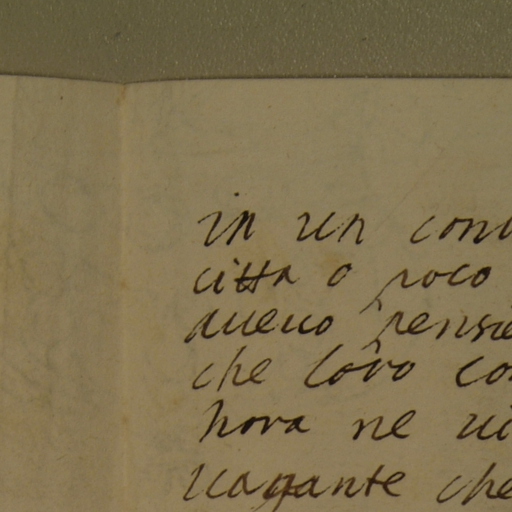 in un con
citta o poco
aueuo pensie
che loro co
hora ne ui
uagante che